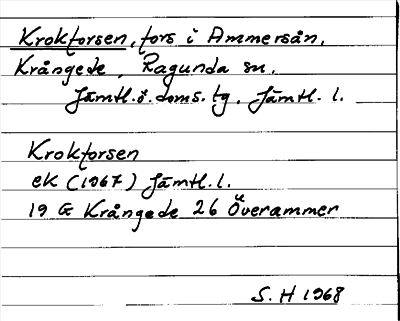 Krokforsen, fors i Ammersån,
Krångede, Ragunda sn.
Jämtl.ö.doms.tg. Jämtl. l.
Krokforsen
ek (1967) Jämtl. l.
19 G Krångede 26 Överammer
S. H 1968